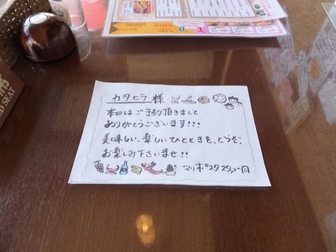 カタヒラ 様
本日はご予約頂きまして
ありがとうございます!!!
美味しい、楽しいひとときを、どうぞ
お楽しみ下さいませ!!